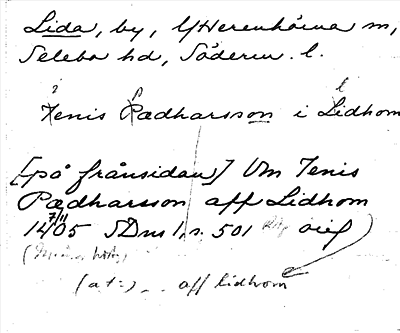 Lida, by, Ytterenhörna sn,
Selebo hd, Söderm. l.
Jenis Pædharsson i Lidhom
[på frånsidan] Vm Jenis
Pædharsson aff Lidhom
7/11
1405 SDns 1, s. 501 orig
(at:) .. aff lidhom